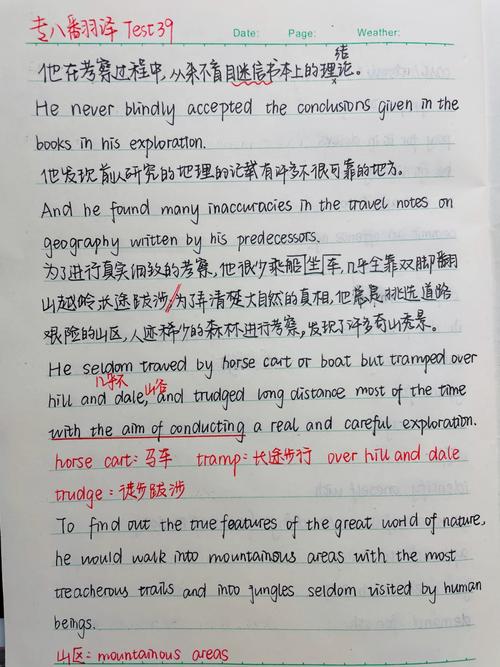 专八翻译 Test 39
Date: Page: Weather:
结
他在考察过程中，从不盲目迷信书本上的理论。
He never blindly accepted the conclusions given in the
books in his exploration.
他发现前人研究的地理的记载有许多不很可靠的地方。
And he found many inaccuracies in the travel notes on
geography written by his predecessors.
为了进行真实细致的考察，他很少乘船坐车，几乎全靠双脚翻
山越岭长途跋涉；为了弄清楚大自然的真相，他总是挑选道路
艰险的山区，人迹稀少的森林进行考察，发现了许多奇山秀景。
He seldom traved by horse cart or boat but tramped over
几乎不 山谷
hill and dale, and trudged long distance most of the time
with the aim of conducting a real and careful exploration.
horse cart: 马车 tramp: 长途步行 over hill and dale
trudge: 徒步跋涉
To find out the true features of the great world of nature,
he would walk into mountainous areas with the most
treacherous trails and into jungles seldom visited by human
beings.
山区: mountainous areas